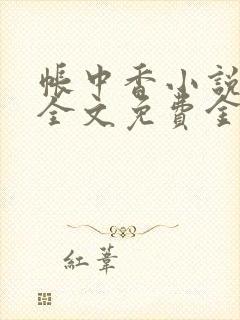 帳中香小說
全文免費全
紅葦